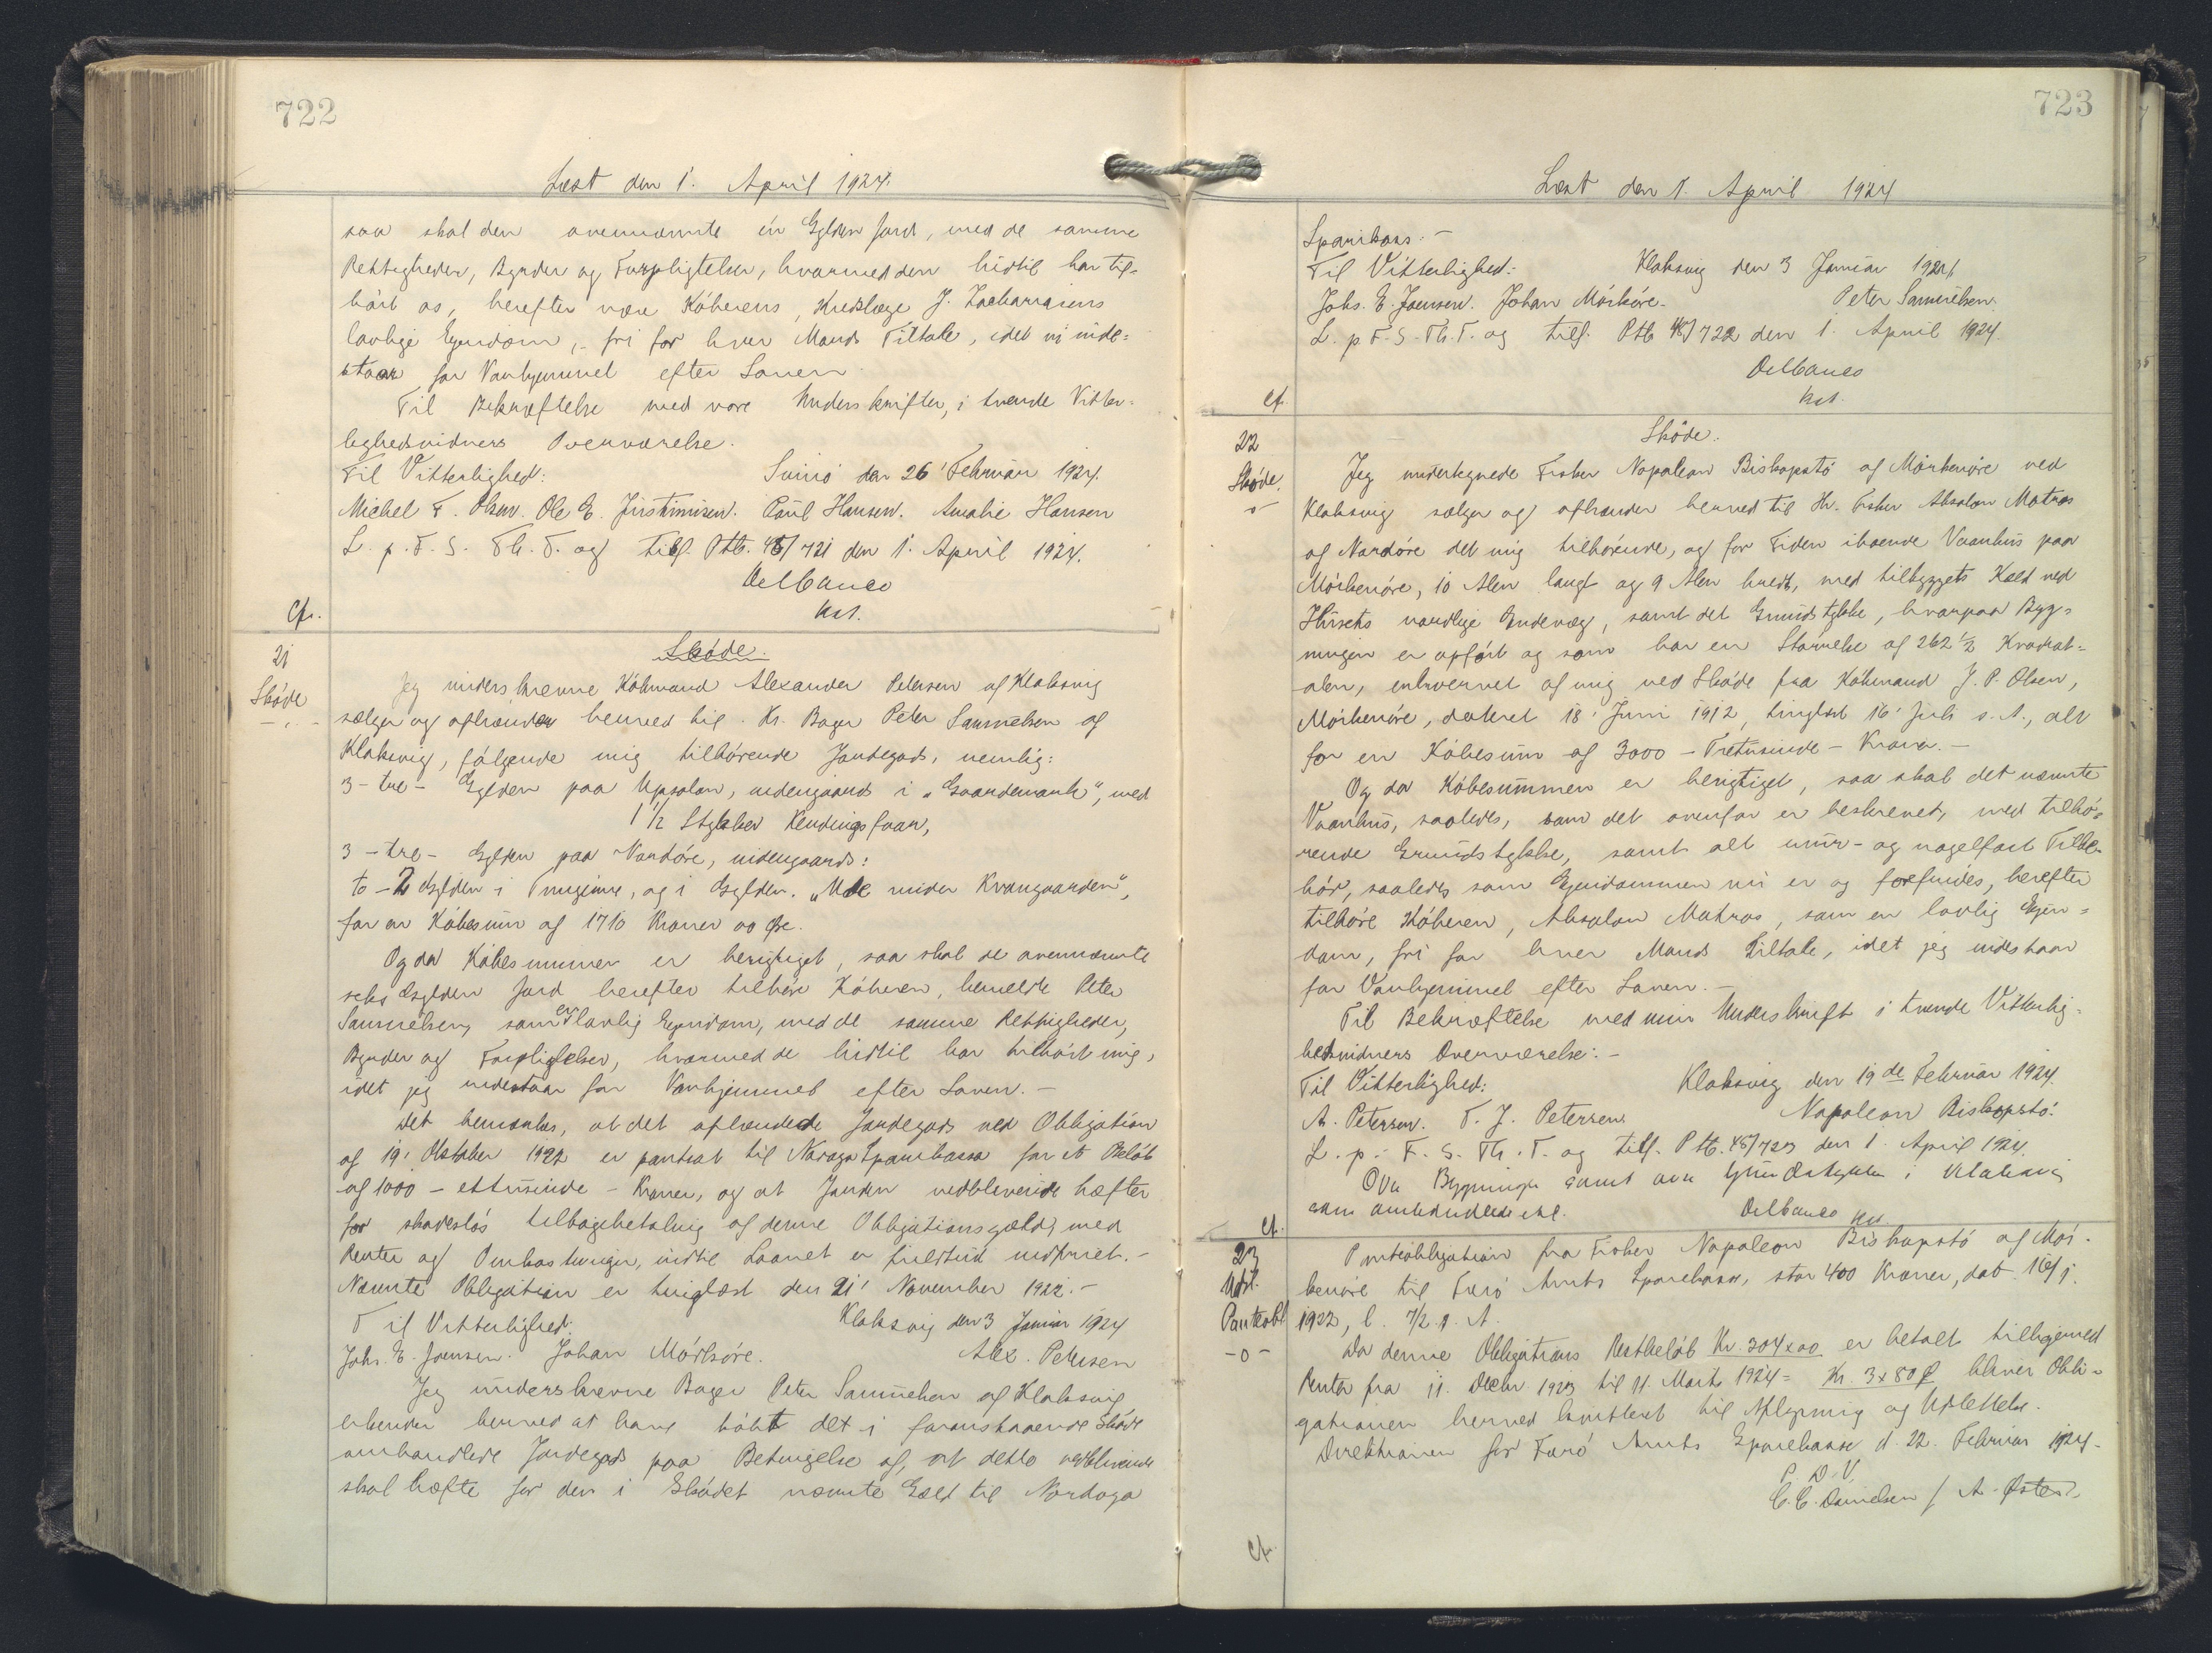 722
Læst den 1. April 1924.
saa skal den ovennævnte én Gylden Jord, med de samme
Rettigheder, Byrder og Forpligtelser, hvormed den hidtil har til=
hört os, herefter være Köberens, Kredslæge J. Zachariasens
lovlige Ejendom, fri for hver Mands Tiltale, idet vi inde=
staar for Vanhjemmel efter Loven.
Til Bekræftelse med vore Underskrifter, i tvende Vitter=
lighedsvidners Overværelse.
Til Vitterlighed: Svinö den 26' Februar 1924.
Michel F. Olsen. Ole E. Justinusen. Poul Hansen. Amalie Hansen
L. p. F. S. Th. T. og tilf. Ptb. 45/721 den 1. April 1924.
Delbanco
kst.
Cfr.
21
Sköde
Sköde.
Jeg underskrevne Köbmand Alexander Petersen af Klaksvig
sælger og afhænder herved til Hr. Bager Peter Samuelsen af
Klaksvig, fölgende mig tilhörende Jordegods, nemlig:
3 - tre - Gylden paa Uppsalon, indengaards i "Gaardemark", med
1 1/2 Stykker Kendingsfaar,
3 - tre - Gylden paa Nordöre, indengaards:
to - 2 Gylden i Tungime, og 1 Gylden. "Ude under Kvangaarden",
for en Köbesum af 1710 Kroner 00 Öre.
Og da Köbesummen er berigtiget, saa skal de ovennævnte
seks Gylden Jord herefter tilhöre Köberen, bemeldte Peter
Samuelsen, som en lovlig Ejendom, med de samme Rettigheder,
Byrder og Forpligtelser, hvormed de hidtil har tilhört mig,
idet jeg indestaar for Vanhjemmel efter Loven. -
Det bemærkes, at det afhændede Jordegods ved Obligation
af 19' Oktober 1922 er pantsat til Nordoya Sparikassa for et Belöb
af 1000 - ettusinde - Kroner, og at Jorden vedblivende hæfter
for skadeslös tilbagebetaling af denne Obligationsgæld, med
Renter og Omkostninger, indtil Laanet er fuldtud indfriet. -
Nævnte Obligation er tinglæst den 21' November 1922. -
Til Vitterlighed: Klaksvig den 3 Januar 1924
Johs. E. Joensen. Johan Mörköre. Alex. Petersen
Jeg underskrevne Bager Peter Samuelsen af Klaksvig
erkender herved at have köbt det i foranstaaende Sköde
omhandlede Jordegods paa Betingelse af, at dette vedblivende
skal hæfte for den i Sködet nævnte Gæld til Nordoya
723
Læst den 1. April 1924
Sparikass: -
Til Vitterlighed: Klaksvig den 3 Januar 1924
Johs. E. Joensen. Johan Mörköre. Peter Samuelsen.
L. p. F. S. Th. T. og tilf. Ptb 45/722 den 1. April 1924.
Delbanco
kst.
cf.
22
Sköde.
Sköde.
Jeg undertegnede Fisker Napoleon Biskopstö af Mörkenöre ved
Klaksvig sælger og afhænder herved til Hr. Fisker Absalon Matras
af Nordöre det mig tilhörende, og for Tiden iboende Vaanhus paa
Mörkenöre, 10 Alen langt og 9 Alen bredt, med tilbygget Kæld ved
Husets nordlige Endevæg, samt det Grundstykke, hvorpaa Byg=
ningen er opfört og som har en Störrelse af 262 1/2 Kvadrat=
alen, erhvervet af mig ved Sköde fra Köbmand J. P. Olsen,
Mörkenöre, dateret 18' Juni 1912, tinglæst 16' Juli s. A., alt
for en Köbesum af 3000 - Tretusinde - Kroner. -
Og da Köbesummen er berigtiget, saa skal det nævnte
Vaanhus, saaledes, som det ovenfor er beskrevet, med tilhö=
rende Grundstykke, samt alt mur- og nagelfast Tilbe=
hör, saaledes som Ejendommen nu er og forfindes, herefter
tilhöre Köberen, Absalon Matras, som en lovlig Ejen=
dom, fri for hver Mands Tiltale, idet jeg indestaar
for Vanhjemmel efter Loven. -
Til Bekræftelse med min Underskrift i tvende Vitterlig=
hedsvidners Overværelse: -
Til Vitterlighed: Klaksvig den 19de Februar 1924.
A. Petersen. T. J. Petersen. Napoleon Biskopstö.
L. p. F. S. Th. T. og tilf. Ptb. 45/723 den 1. April 1924.
Ovn Bygninger samt ovn Grundstykke i Klaksvig
som anmeldt. Delbanco kst.
cf.
23
Udsl.
Panteobl
-o-
Panteobligation fra Fisker Napoleon Biskopstö af Mör=
kenöre til Færö Amts Sparekasse, stor 400 Kroner, dat. 16/1
1922, l. 7/2 s. A.
Da denne Obligations Restbelöb Kr. 304 x 00 er betalt tilligemed
Renter fra 11. Decbr. 1923 til 11. Marts 1924 = Kr. 3 x 80 Ø bliver Obli=
gationen herved kvitteret til Aflysning og Udslettelse.
Direktionen for Færö Amts Sparekasse d. 22. Februar 1924.
P. D. V.
C. C. Danielsen / A. Öster.
cf.